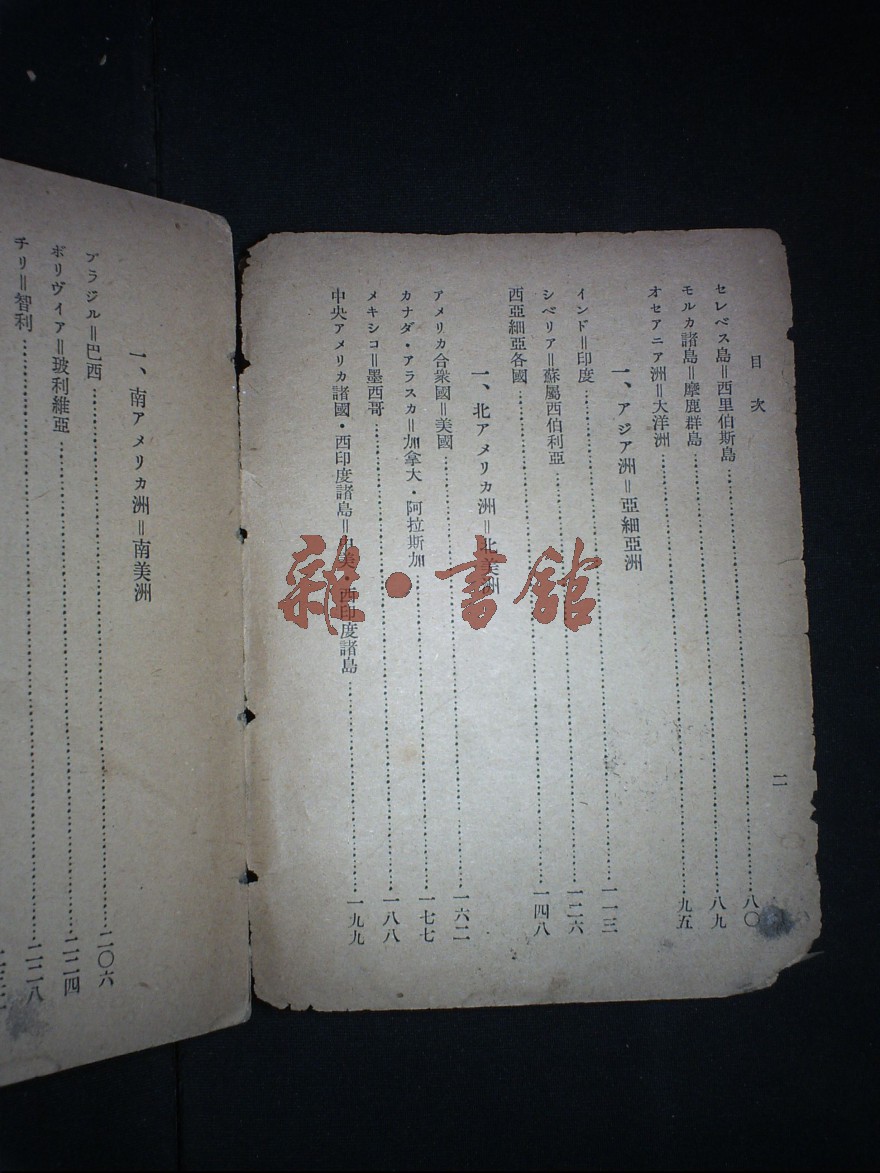 目次
二
セレベス島=西里伯斯島……八〇
モルカ諸島=摩鹿群島……八九
オセアニア洲=大洋洲……九五
一、アジア洲=亞細亞洲
インド=印度……一一三
シベリア=蘇屬西伯利亞……一二六
西亞細亞各國……一四八
一、北アメリカ洲=北美洲
アメリカ合衆國=美國……一六二
カナダ・アラスカ=加拿大・阿拉斯加……一七七
メキシコ=墨西哥……一八八
中央アメリカ諸國・西印度諸島=中美・西印度諸島……一九九
一、南アメリカ洲=南美洲
ブラジル=巴西……二〇六
ボリヴィア=玻利維亞……二二四
チリ=智利……二二八
雜·書館